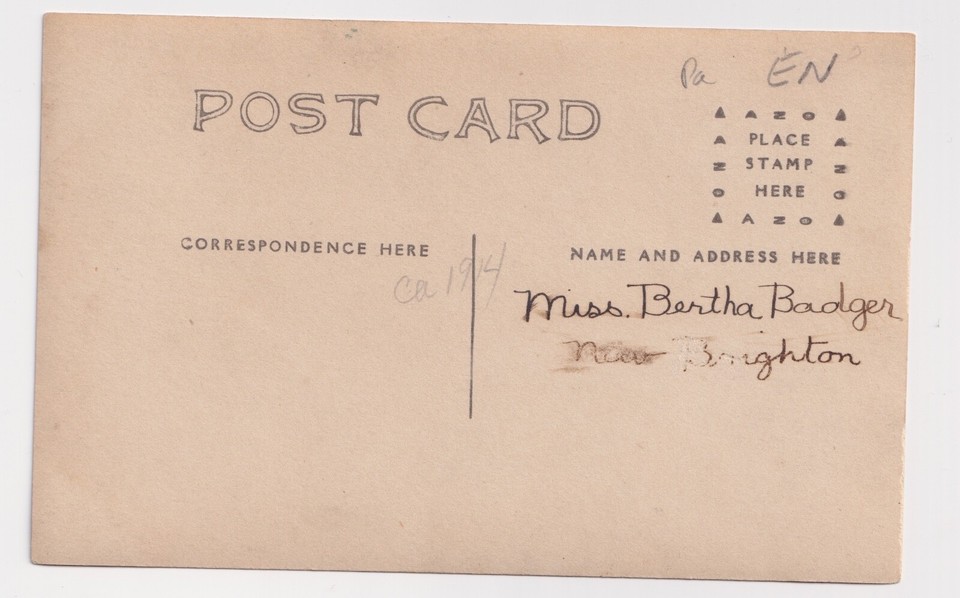 Pa EN
POST CARD
A Z O
PLACE
STAMP
HERE
A Z O
CORRESPONDENCE HERE
NAME AND ADDRESS HERE
ca 1914
Miss. Bertha Badger
New Brighton